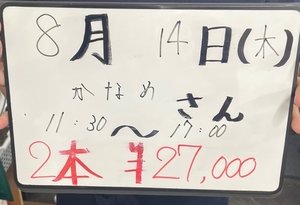 8月 14日(木)
かなめ さん
11:30〜17:00
2本 ¥27,000